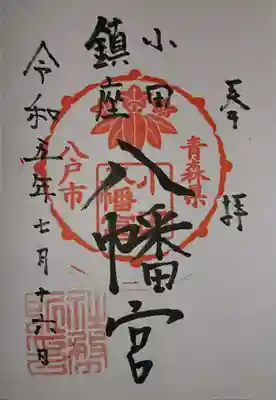 奉拝
小田
鎮座
八幡宮
青森県
八戸市
小田
八幡宮
令和五年七月十六日